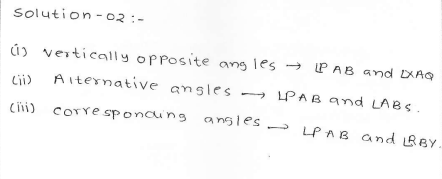 Solution-02:-
(i) vertically opposite angles → ∠PAB and ∠XAQ
(ii) Alternative angles → ∠PAB and ∠ABS.
(iii) corresponding angles → ∠PAB and ∠RBY.